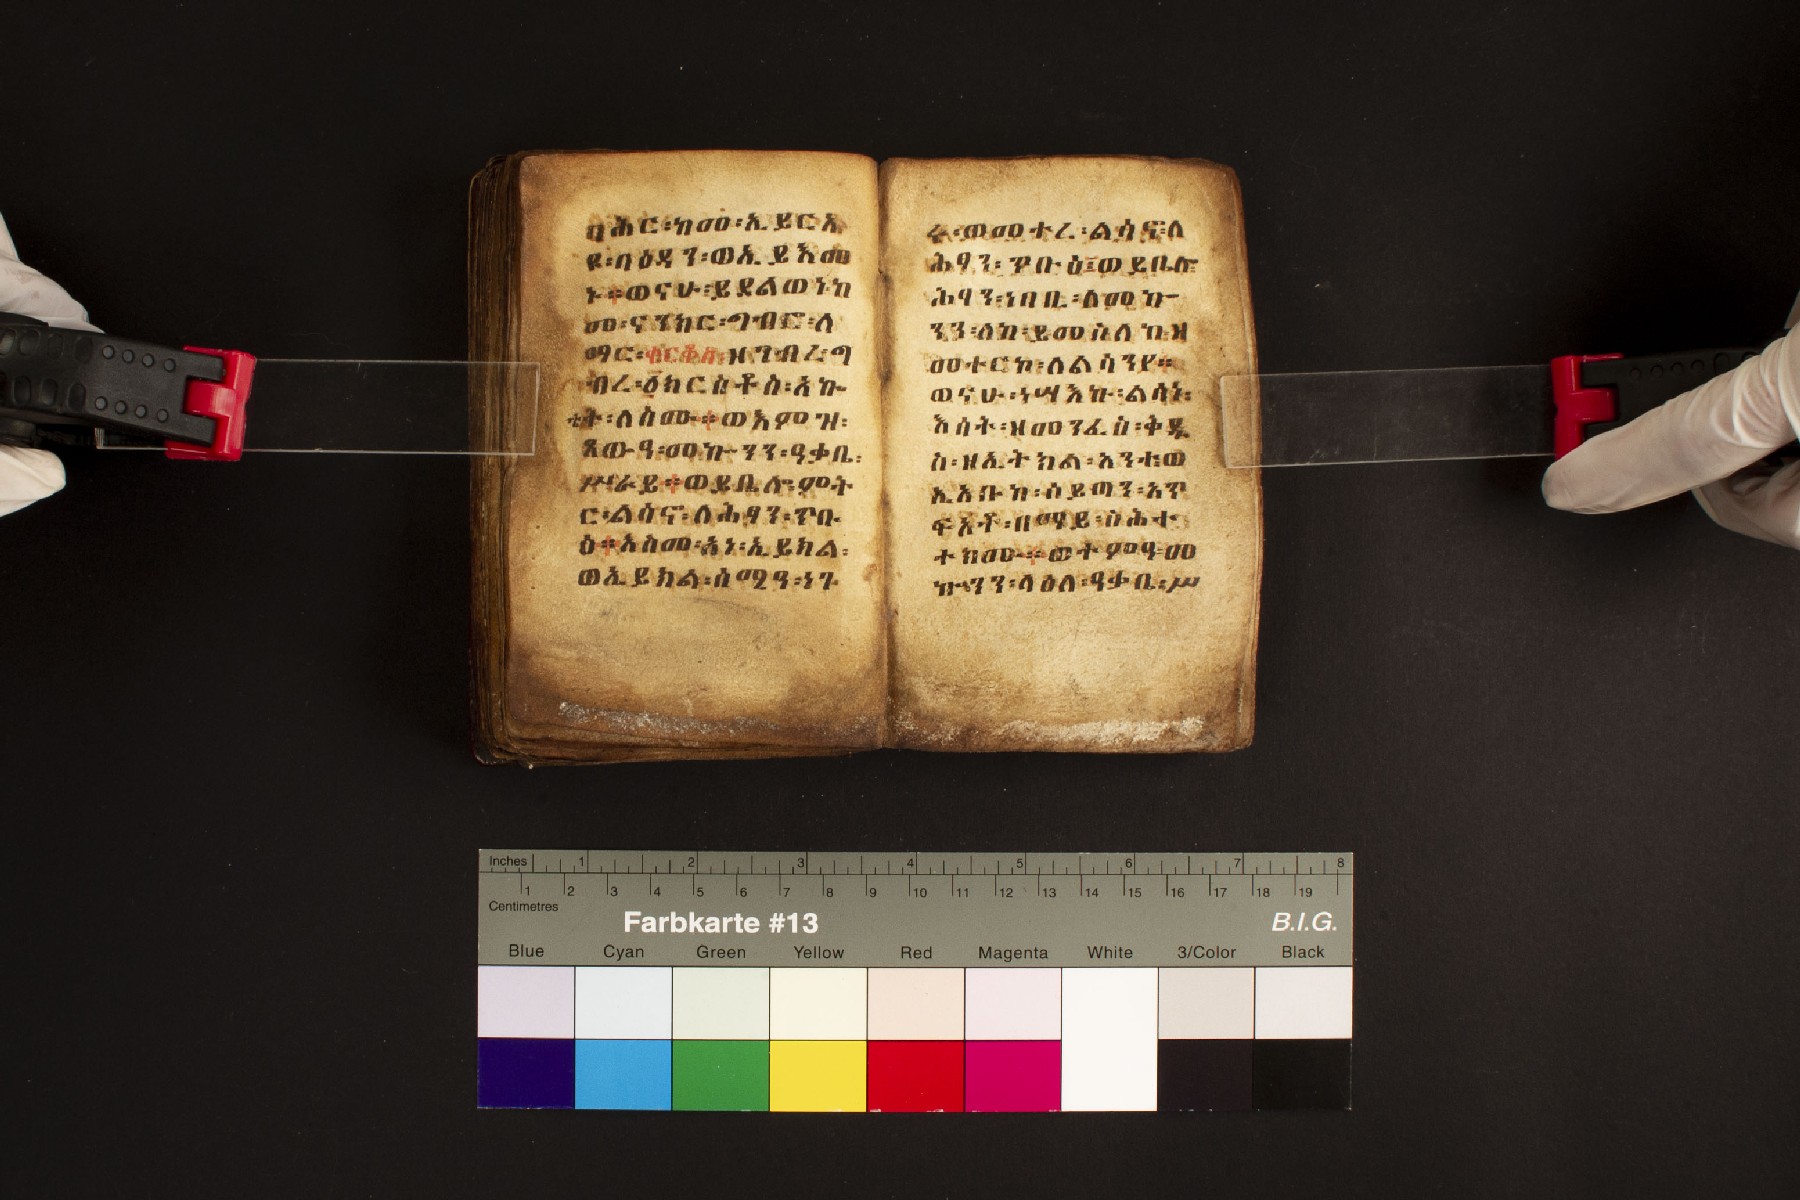 ባሕር፡ከመ፡ኢይርአ
ዩ፡ በዕዳን፡ወኢይእመ
ኑ።ወናሁ፡ይደልወነከ
መ፡ናንክር፡ግብሮ፡ለ
ማር፡ቂርቆስ፡ዘገብረ፡
ብረ፡
ት፡ለስሙ።ወእምዝ፡
ጸውዓ፡መኰንን፡ዓቃቤ፡
ሥራይ።ወይቤሎ፡ምት
ር፡ልሳኖ፡ለሕፃን፡ጥቡ
ዕ።እስመ፡አነ፡ኢይክል፡
ወኢይክል፡ሰሚዓ፡ነገ
ሩ፡ወመተረ፡ልሳኖ፡ለ
ሕፃን፡ጥቡዕ፤ወይቤሎ
ሕፃን፡ነባቢ፡ለመኰ
ንን፡ለከ፡ይመስለከ፡ዘ
መተርከ፡ለልሳንየ።
ወናሁ፡ነሣእኩ፡ልሳነ፡
እሳት፡ዘመንፈስ፡ቅዱ
ስ፡ዘኢትክል፡አንተ፡ወ
ኢአቡከ፡ሰይጣን፡አጥ
ፍኦቶ፡በማይ፡
ተክሙ።ወተምዓ፡መ
ኰንን፡ላዕለ፡ዓቃቤ፡ሥ
Inches 1 2 3 4 5 6 7 8
1 2 3 4 5 6 7 8 9 10 11 12 13 14 15 16 17 18 19
Centimetres
Farbkarte #13 B.I.G.
Blue Cyan Green Yellow Red Magenta White 3/Color Black